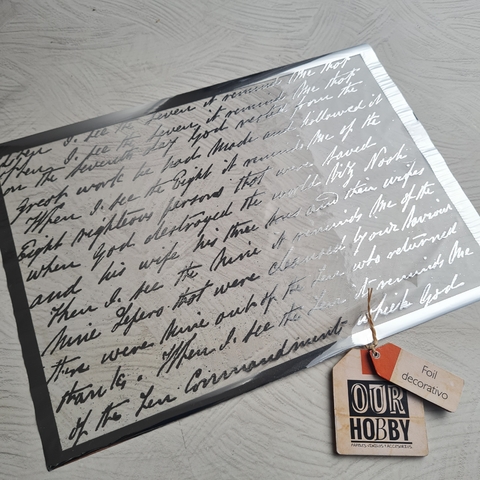 When I see the Seven it reminds Me that
When I see the Seven, it reminds Me that
on the Seventh day God rested from the
great work he had made and hallowed it
When I see the Eight it reminds Me of the
Eight righteous persons that were saved
when God destroyed the world Viz Noah
and his wife his three sons and their wifes
When I see the Nine it reminds Me of the
Nine Lepers that were cleansed by our Saviour
there were Nine out of the ten who returned
thanks. When I see the it reminds Me
of the Ten Commandments God
Foil
decorativo
OUR
HOBBY